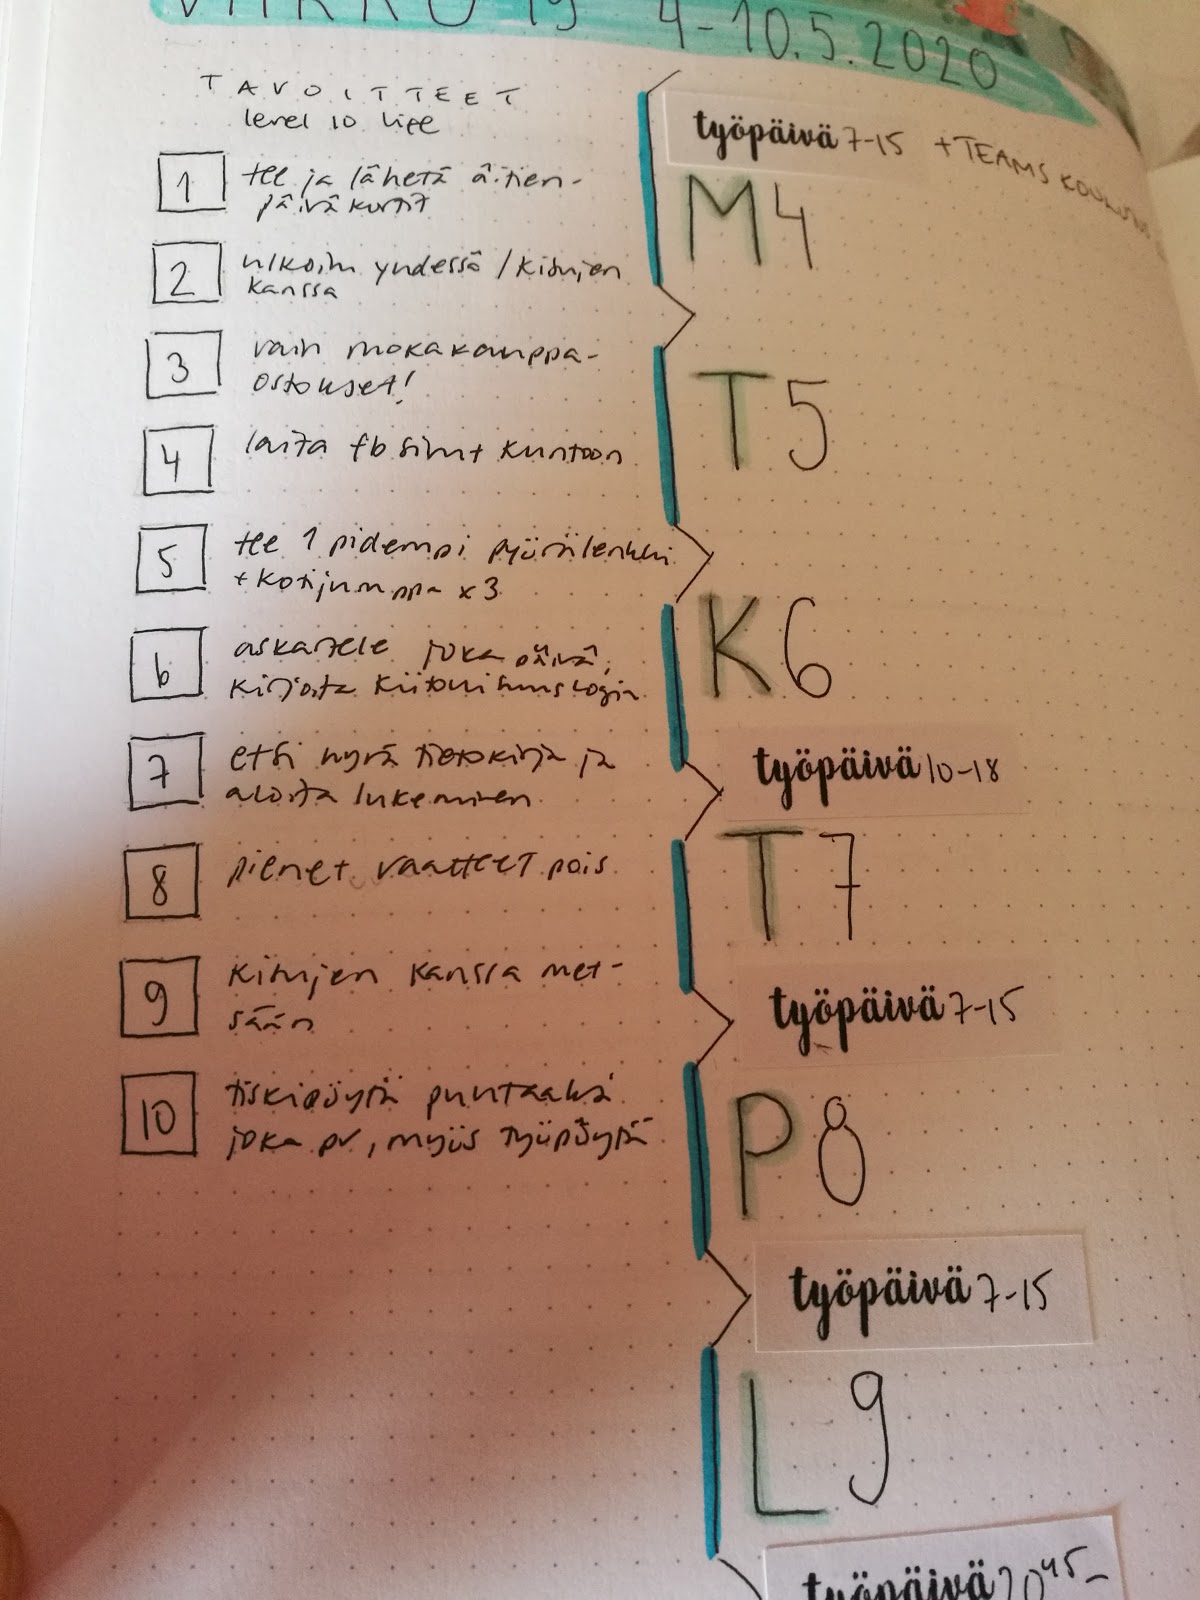 VIIKKO 19 4-10.5.2020
TAVOITTEET
level 10 life
1 tee ja lähetä äitien-
päivä kortit
2 ulkoilu yhdessä / kisujen
kanssa
3 vain ruokakauppa-
ostokset!
4 laita fb sivut kuntoon
5 tee 1 pidempi pyörälenkki
+ kotijumppa x3
6 askartele joka päivä,
kirjoita kiitollisuuslogiin
7 etsi hyvä tietokirja ja
aloita lukeminen
8 pienet vaatteet pois
9 kisujen kanssa met-
sään
10 tiskipöytä puhtaaksi
joka pv, myös työpöytä
työpäivä 7-15 + TEAMS KOULUTUS
M4
T5
K6
työpäivä 10-18
T7
työpäivä 7-15
P8
työpäivä 7-15
L9
työpäivä 20⁴⁵-